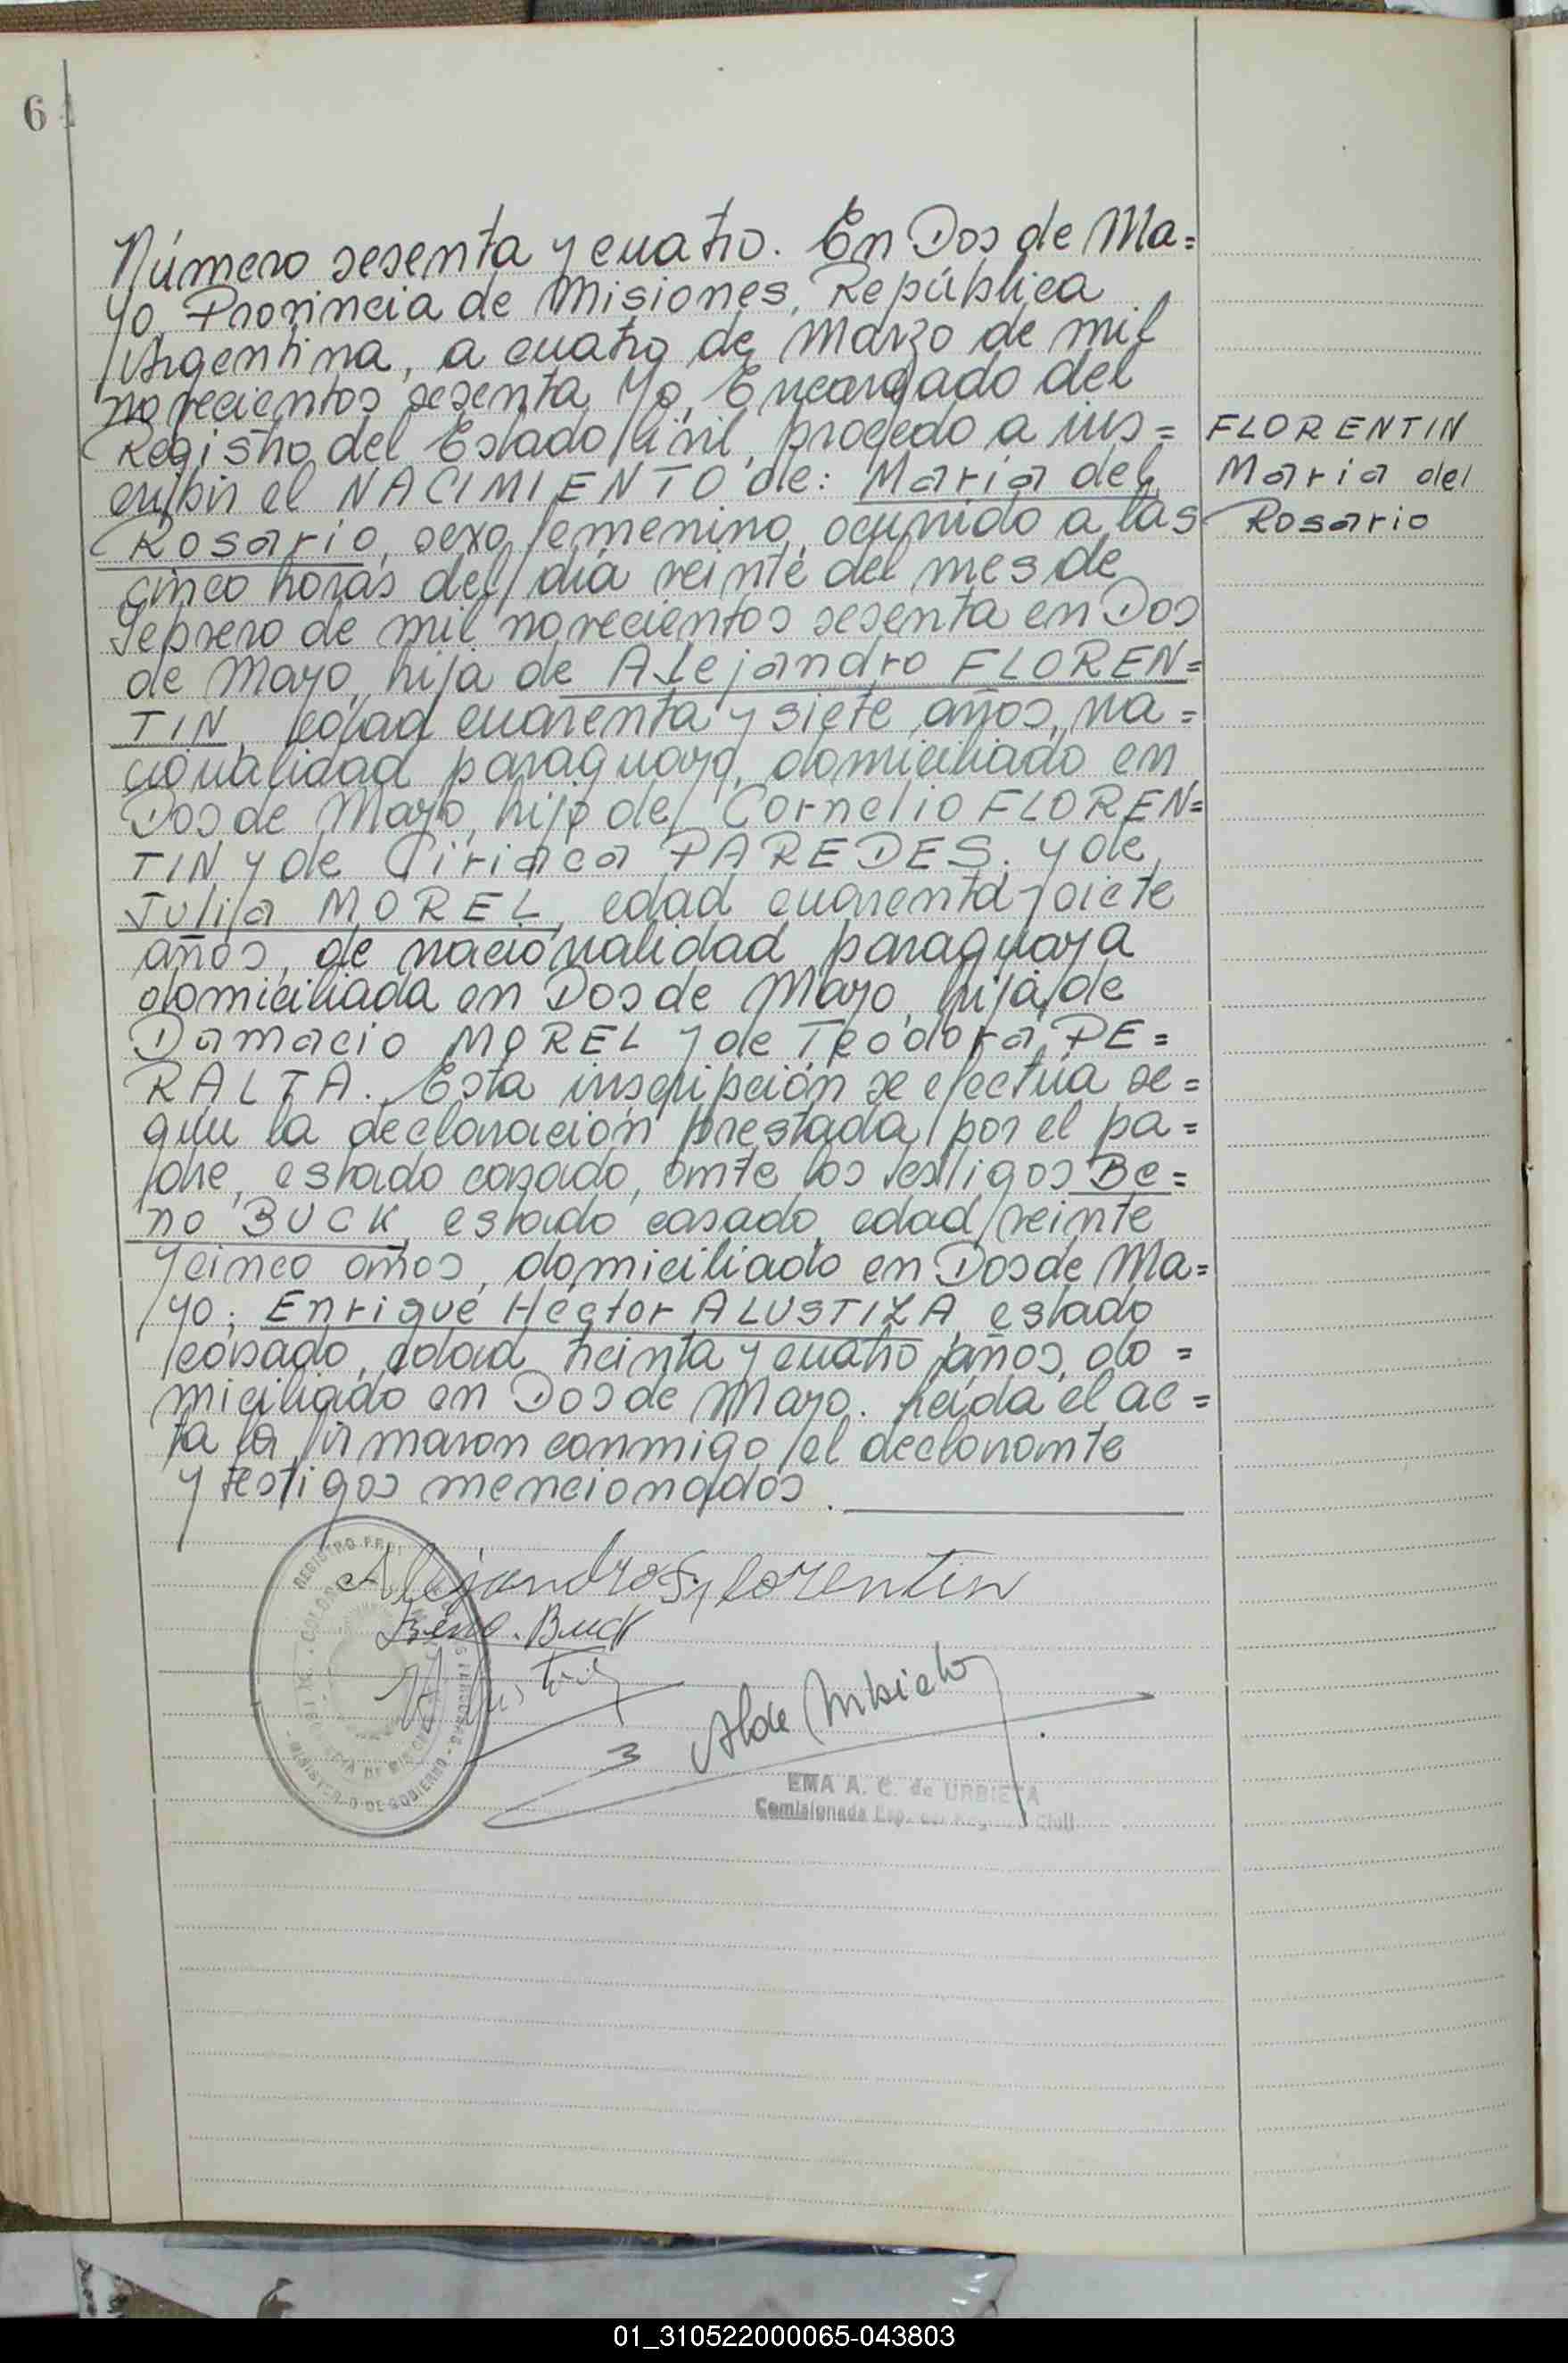 64
Número sesenta y cuatro. En Dos de Ma=
yo, Provincia de Misiones, República
Argentina, a cuatro de Marzo de mil
novecientos sesenta. Yo, Encargado del
Registro del Estado Civil, procedo a ins=
cribir el NACIMIENTO de: Maria del
Rosario, sexo femenino, ocurrido a las
cinco horas del día veinte del mes de
Febrero de mil novecientos sesenta en Dos
de Mayo, hija de Alejandro FLOREN=
TIN, edad cuarenta y siete años, na=
cionalidad paraguayo, domiciliado en
Dos de Mayo, hijo de Cornelio FLOREN=
TIN y de Ciriaca PAREDES. y de
Julia MOREL, edad cuarenta y siete
años, de nacionalidad paraguaya
domiciliada en Dos de Mayo, hija de
Damacio MOREL y de Teodora PE=
RALTA. Esta inscripción se efectúa se=
gún la declaración prestada por el pa=
dre, estado casado, ante los testigos Be=
no BUCK, estado casado, edad veinte
y cinco años, domiciliado en Dos de Ma=
yo; Enrique Héctor ALUSTIZA, estado
casado, edad treinta y cuatro años, do=
miciliado en Dos de Mayo. Leída el ac=
ta la firmaron conmigo el declarante
y testigos mencionados.
FLORENTIN
Maria del
Rosario
Alejandro Florentin
Beno. Buck
EMA A. C. de URBIETA
Comisionada Esp. del Registro Civil
REGISTRO
MINISTERIO DE GOBIERNO
01_310522000065-043803